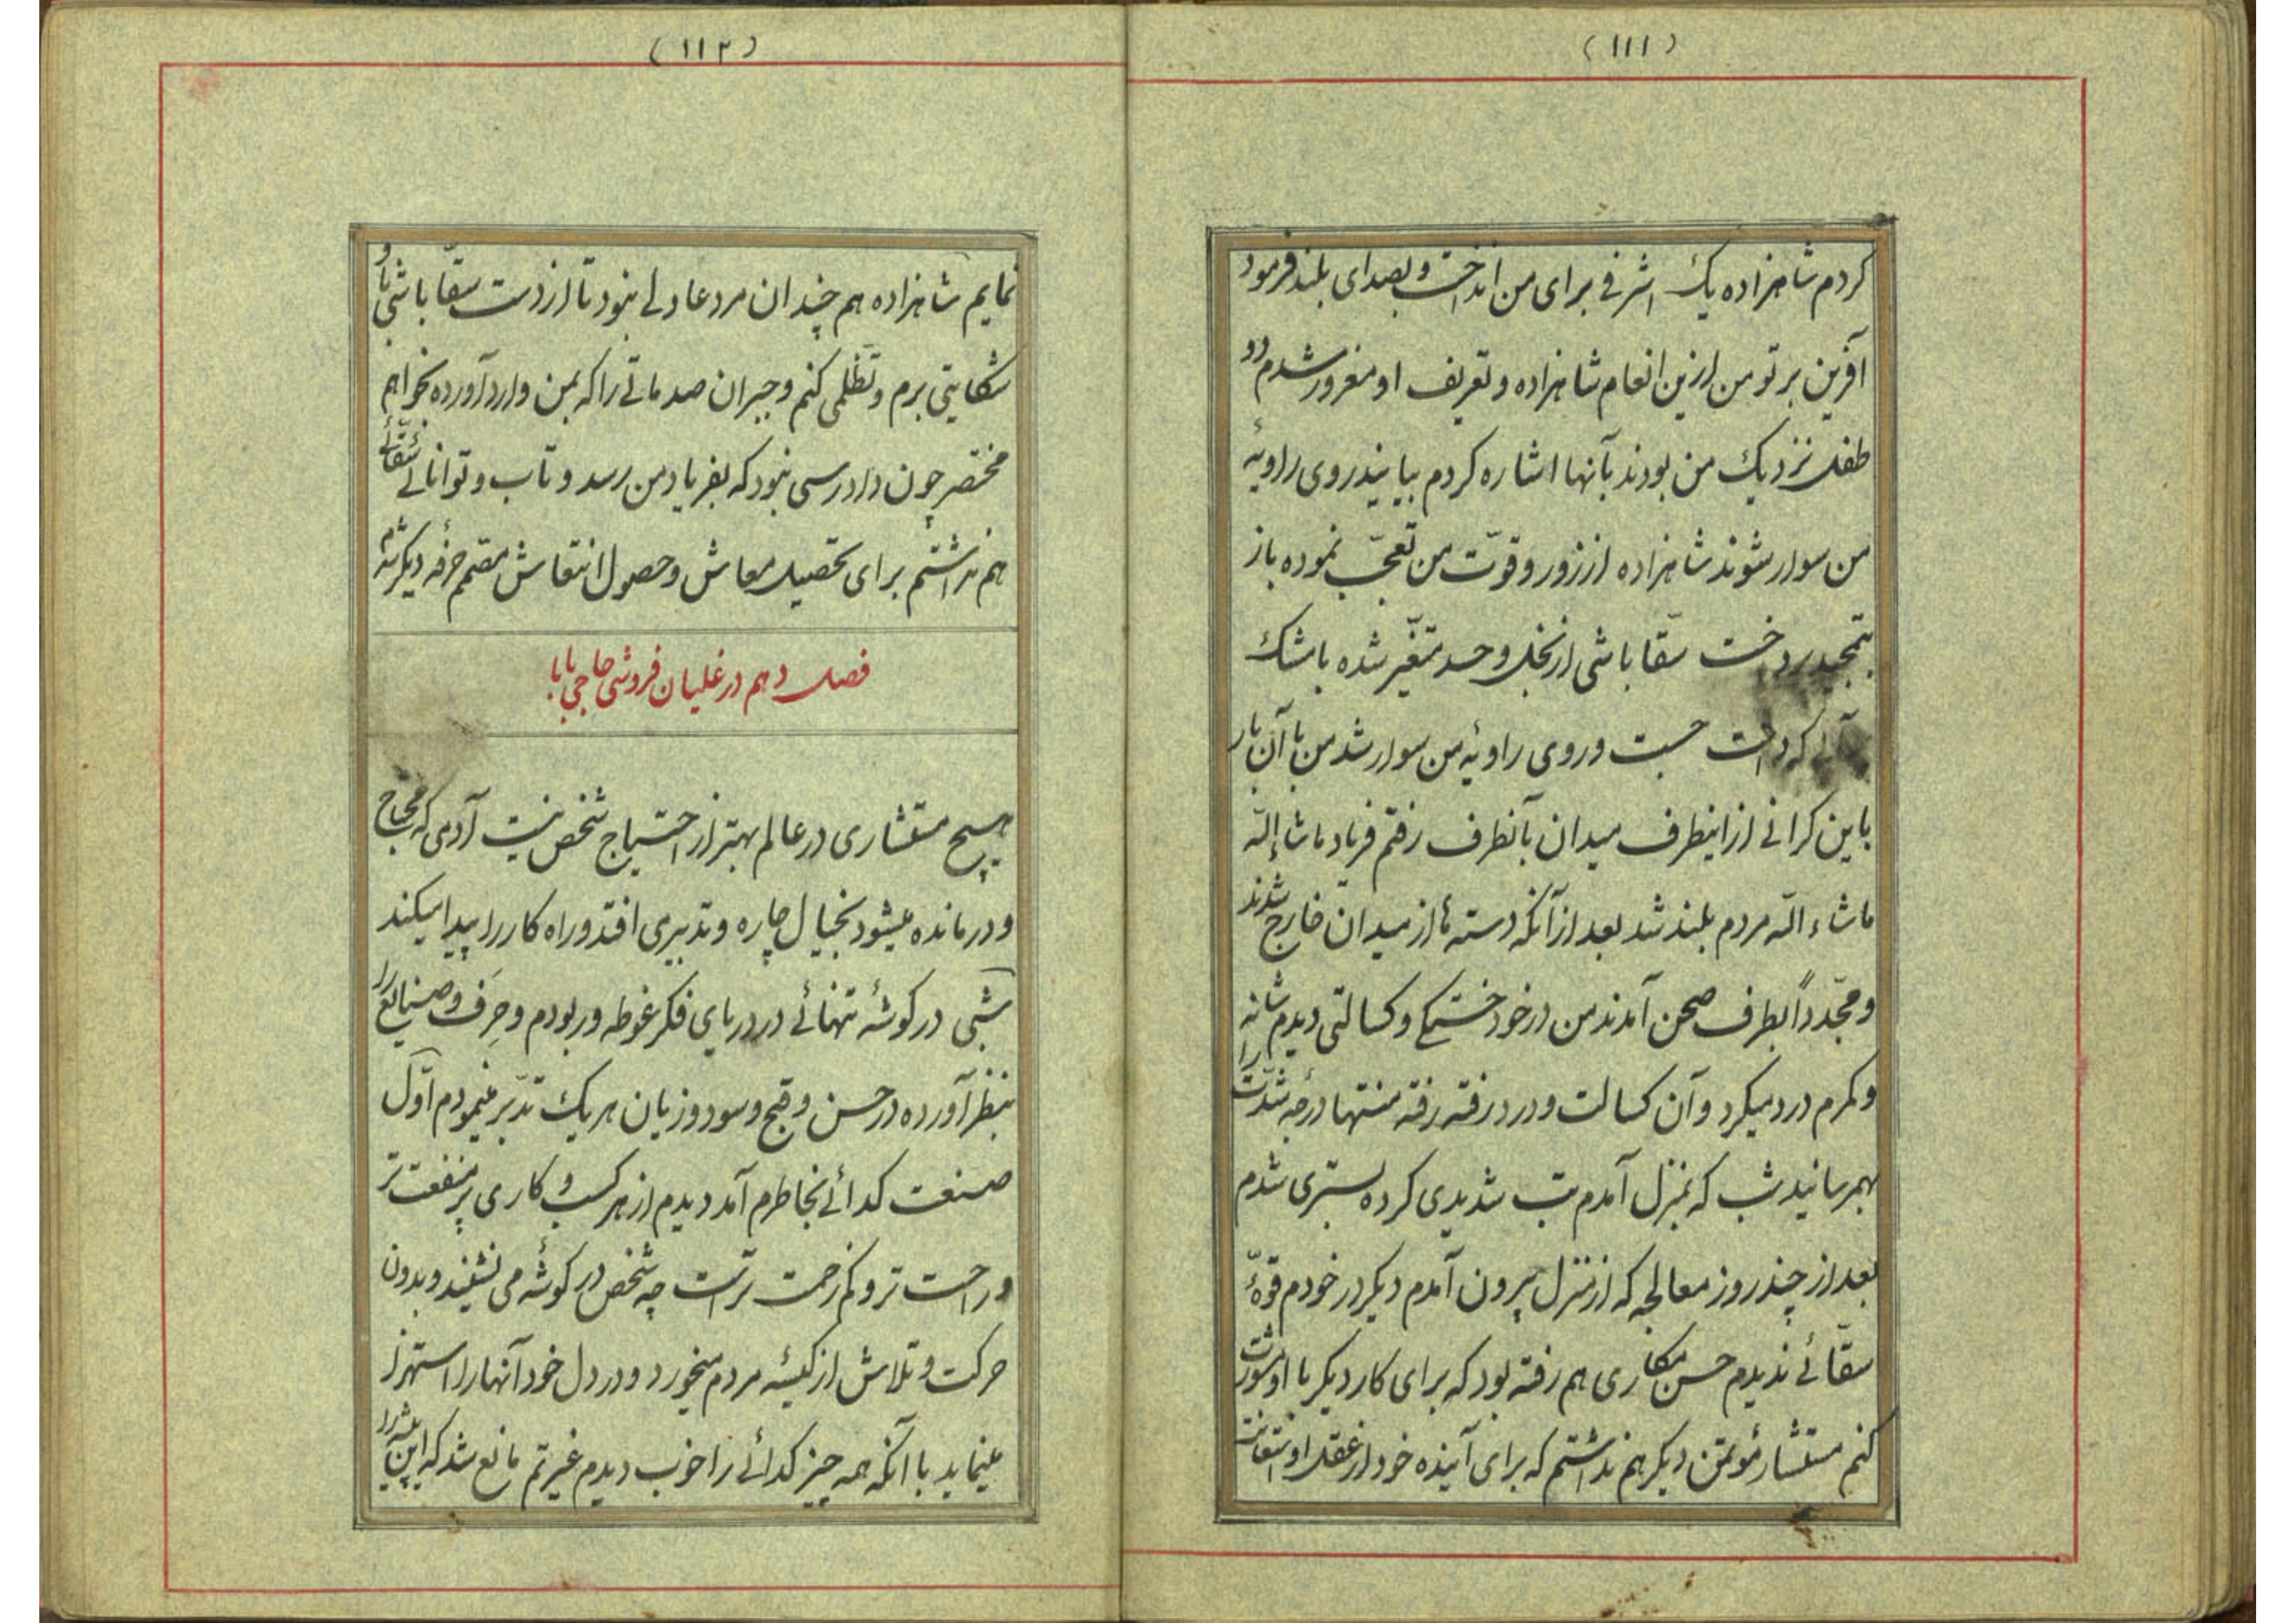 (۱۱۱)
کردم شاهزاده یک اشرفی برای من انداخت و بصدای بلند فرمود
آفرین بر تو من ازین انعام شاهزاده و تعریف او مغرور شدم دو
طفل نزدیک من بودند بآنها اشاره کردم بیایند روی راویهٔ
من سوار شوند شاهزاده از زور و قوّت من تعجّب نموده باز
بتمجید پرداخت سقّا باشی از بخل و حسد متغیّر شده با مشک
آبی که داشت جست و روی راویهٔ من سوار شد من با آن بار
باین کرانی از اینطرف میدان بآنطرف رفتم فریاد ماشاءالله
ماشاءالله مردم بلند شد بعد از آنکه دسته‌ها از میدان خارج شدند
و مجدّداً بطرف صحن آمدند من در خود خستکی و کسالتی دیدم شانه
و کمرم درد میکرد و آن کسالت و درد رفته رفته منتها درجه شدّت را
بهمرسانید شب که بمنزل آمدم تب شدیدی کرده بستری شدم
بعد از چند روز معالجه که از منزل بیرون آمدم دیکر در خودم قوّهٔ
سقّائی ندیدم حسن مکاری هم رفته بود که برای کار دیکر با او مشورت
کنم مستشار مؤتمن دیکر هم نداشتم که برای آینده خود از عقل او استعانت
(۱۱۲)
نمایم شاهزاده هم چندان مرد عادلی نبود تا از دست سقّا باشی باو
شکایتی برم و تظلّمی کنم و جبران صدماتی را که بمن وارد آورده بخواهم
مختصر چون دادرسی نبود که بفریاد من رسد و تاب و توانائی سقّائی
هم نداشتم برای تحصیل معاش و حصول انتعاش مصمّم حرفه دیکر شدم
فصل دهم در غلیان فروشی حاجی بابا
هیچ مستشاری در عالم بهتر از احتیاج شخص نیست آدمی که محتاج
و درمانده میشود بخیال چاره و تدبیری افتد و راه کار را پیدا میکند
شبی در کوشهٔ تنهائی در دریای فکر غوطه ور بودم و حِرَف و صنایع را
بنظر آورده در حسن و قبح و سود و زیان هر یک تدبّر مینمودم اوّل
صنعت کدائی بخاطرم آمد دیدم از هر کسب و کاری پر منفعت تر
و راحت تر و کم زحمت تر است چه شخص در کوشهٔ می نشیند و بدون
حرکت و تلاش از کیسهٔ مردم میخورد و در دل خود آنها را استهزا
مینماید با آنکه همه چیز کدائی را خوب دیدم غیرتم مانع شد که این پیشه را